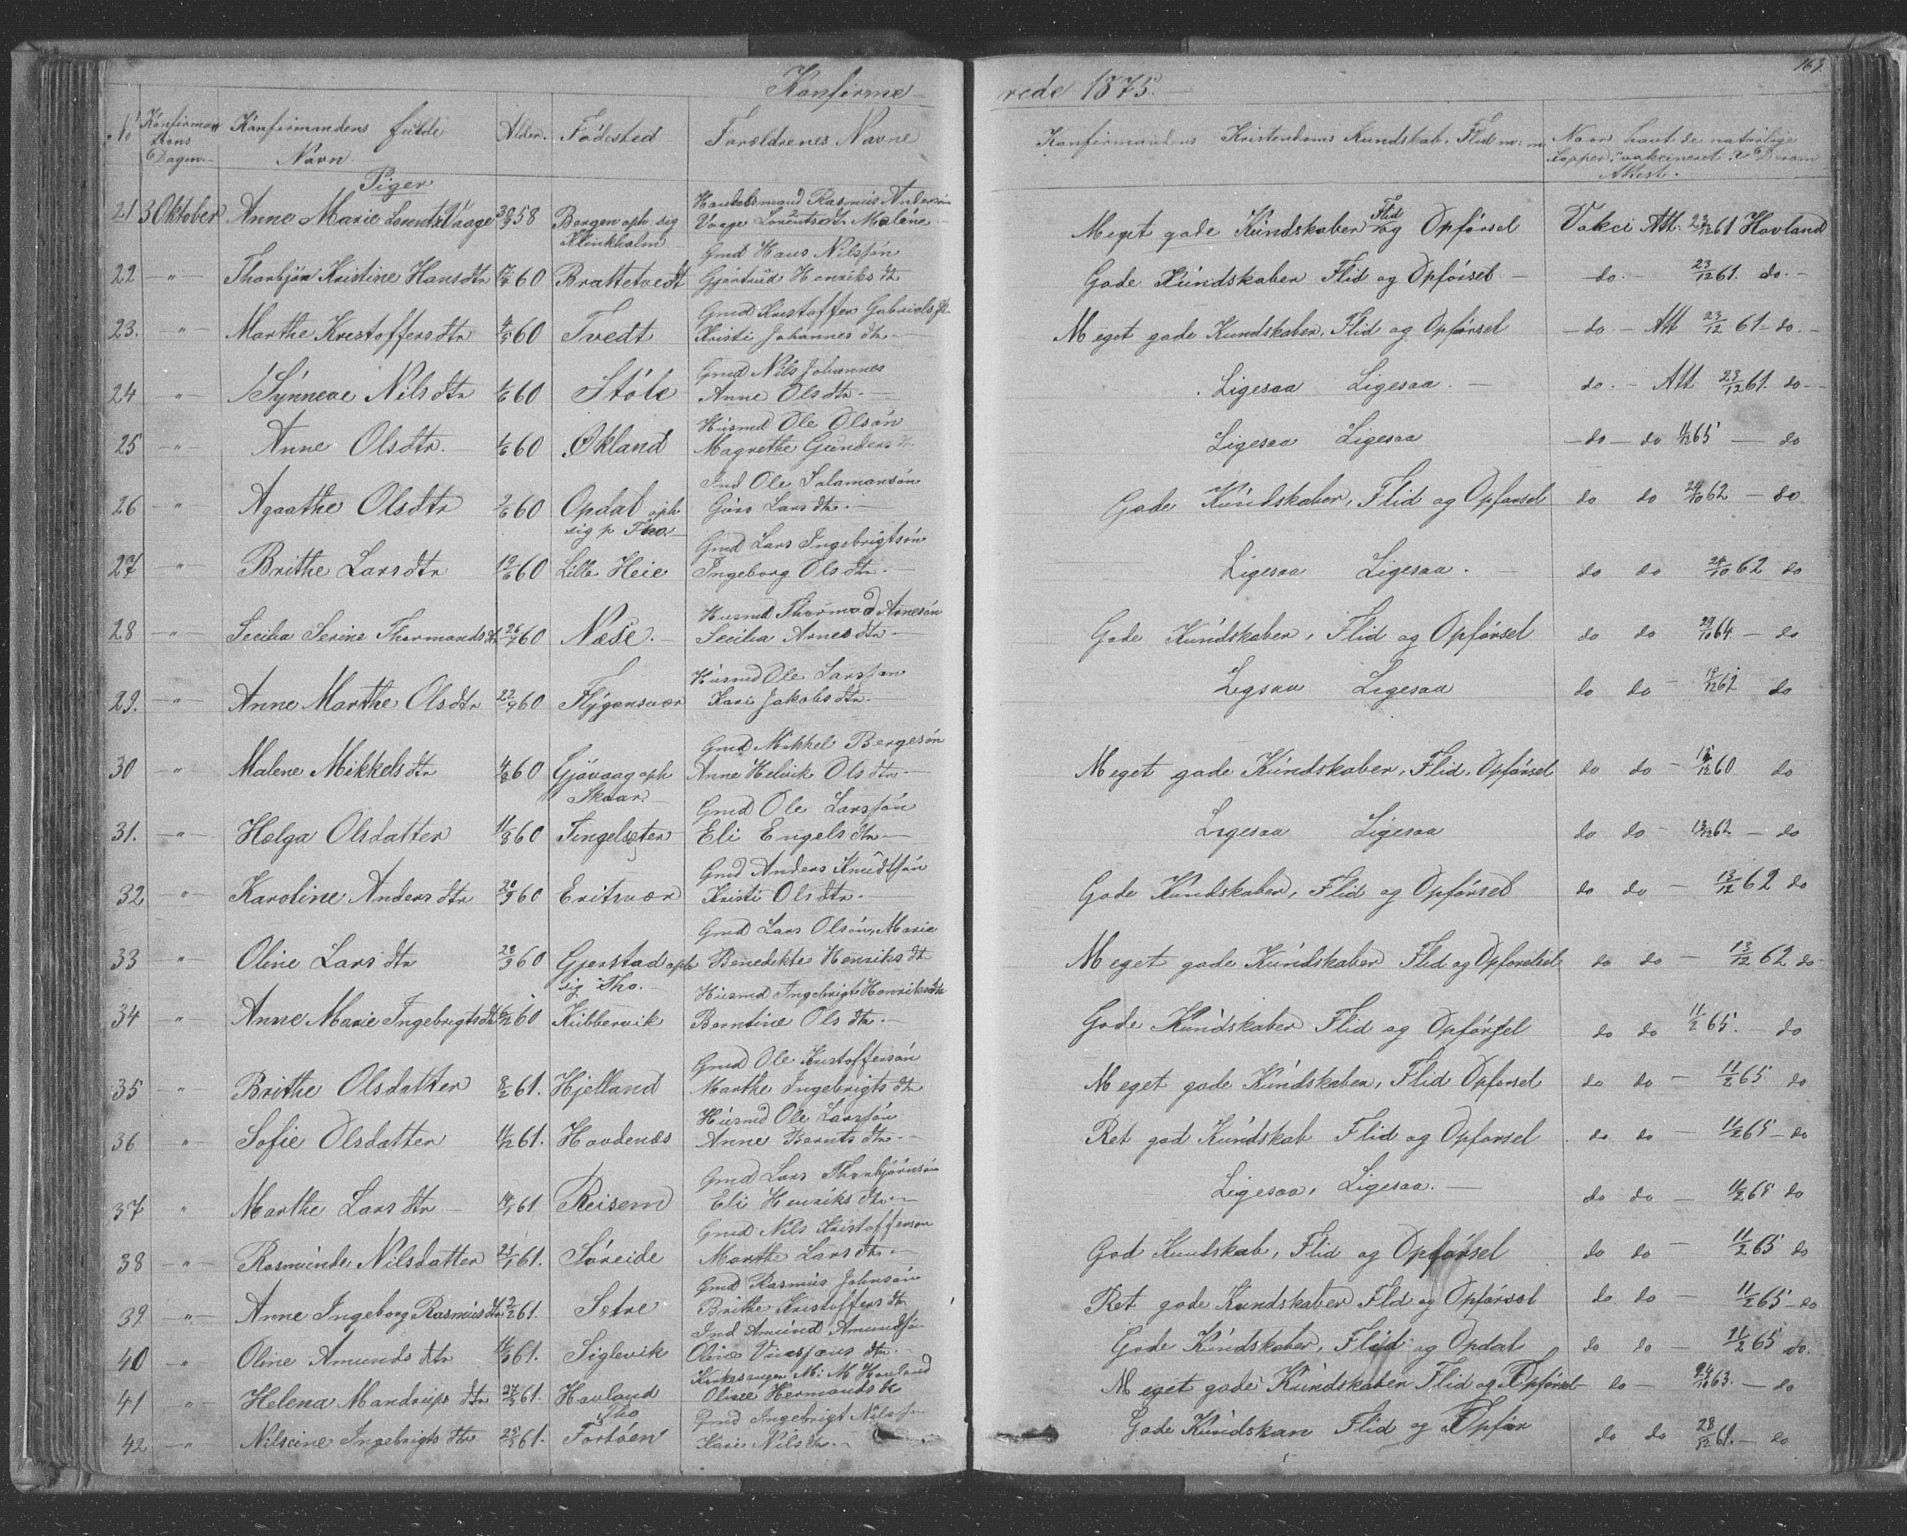 Konfirme- rede 1875.
163.
No Konfirma- tions Dagen. Konfirmandens fulde Navn Alder. Fødested Forældrenes Navne Konfirmandens Kristendoms Kundskab, Flid m: m Naar havt de naturlige Kopper, vakcineret? Attest.
Piger
Handelsmand Rasmus Andersøn
21 3 Oktober Anne Marie Vaage 58 Bergen oph. sig Vaage Malene Meget gode Kundskaber Flid og Opførsel Vakci Att. 23/12 61 Hovland
Klinkholm
Gmd Hans Nilssøn
22 -"- Thorbjør Kristine Hansdtr 60 Brattetvedt Gjertrud Henriks dtr Gode Kundskaber Flid og Opførsel - do. - 23/12 61. do. -
Gmd Kristoffer Gabriels
23. -"- Marthe Kristoffersdtr 60 Tvedt Kristi Johannes dtr. - Meget gode Kundskaber, Flid og Opførsel - do - Att 23/12 61 - do. -
Gmd Nils Johannes
24 -"- Synneve Nils dtr 60 Støle Anne Olsdtr. - Ligesaa Ligesaa. - do. - Att 23/12 61. do -
Husmd Ole Olsøn
25 -"- Anne Olsdtr. - 60 Økland Magrethe Gunders Ligesaa Ligesaa - do - do 11/2 65 - do
Ind Ole Salamonsøn
26 " Agaathe Olsdtr 60 Opdal oph Lars dtr. - Gode Kundskaber, Flid og Opførsel do do 29/10 62 - do
sig p Tho.
Gmd Lars Ingebrigtsøn
27 " Brithe Larsdtr 60 Lille Heie Ingeborg Ols dtr. - Ligesaa Ligesaa. - do do 29/10 62 do
Husmd Thormod Arnesøn
28 -"- Secilia Serine Thormands dtr 60 Næse. - Secilia Arnes dtr - Gode Kundskaber, Flid og Opførsel do do 29/10 64. - do
Husmd Ole Larssøn
29. -"- Anne Marthe Olsdtr 22/7 60 Flygansvær Kari Jakobsdtr. Ligsaa Ligesaa do do - 62 do
Gmd Mikkel Bergesøn
30 -"- Malene Mikkels dtr 60 Gjøvaag oph Anne Helvik Ols dtr. - Meget gode Kundskaber, Flid, Opførsel do do - 60 do
Skaar. -
Gmd Ole Larssøn
31. -"- Helga Olsdatter 11/8 60 Tingelseter Eli Engels dtr - Ligesaa Ligesaa do do - 13/12 62 - do
Gmd Anders Knudtsøn
32 -"- Karoline Anders dtr 60 Eritsvær Kristi Olsdtr. - Gode Kundskaber, Flid og Opførsel do do - 13/12 62 do
Gmd Lars Olsøn, Marie
33 -"- Oline Lars dtr 60 Gjerstad oph Benedikte Henriks dtr Meget gode Kundskaber Flid og Opførsel do do - 13/12 62 do
sig Tho. -
Husmd Ingebrigt Henriks
34 -"- Anne Marie Ingebrigts dtr 60 Kubbervik Berntine Ols dtr. - Gode Kundskaber Flid og Opførsel do do 11/2 65. - do
Gmd Ole Kristoffersøn
35 " Brithe Olsdatter 61. Hjelland Marthe Ingebrigts dtr Meget gode Kundskaber, Flid Opførsel do do - 11/2 65 do
Husmd Ole Larssøn
36 " Sofie Olsdatter 61. Havdenæs Anne Bernts dtr. - Ret god Kundskab Flid og Opførsel do do - 11/2 65 - do
Gmd Lars Thorbjørnsøn
37 " Marthe Lars dtr 61 Reisem Eli Henriks dtr. - Ligesaa, Ligesaa. - do do - 11/2 65 do
Gmd Nils Kristoffersøn
38 -"- Rasmunde Nilsdatter 61. Søreide Marthe Lars dtr. - God Kundskab, Flid og Opførsel do do - 11/2 65 do
Gmd Rasmus Johnsøn
39 -"- Anne Ingeborg Rasmus dtr 61. Sætre Brithe Kristoffers dtr Ret gode Kundskaber Flid og Opførsel do do - 11/2 65 - do
Ind Amund Amundsøn
40 " Oline Amunds dtr 61. Siglevik Oline dtr. - Gode Kundskaber, Flid og Opdal do do - 11/2 65 do.
Kirkesanger M: M Havland
41 -"- Helena Mandrups dtr 61. Havland Oline Hermands dtr Meget gode Kundskaber Flid og Opførsel do - 63. - do
Tho
Gmd Ingebrigt Nilssøn
42 -"- Nilsine Ingebrigts dtr 61. Fortøen Kari Nils dtr. - Gode Kundskan Flid og Opfør do do 28/12 61. - do